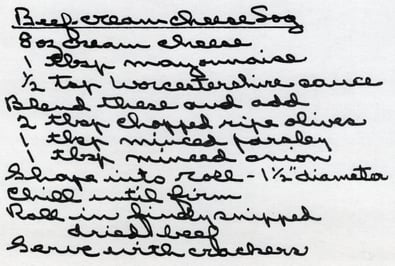 Beef-cream cheese Log
8 oz cream cheese
1 tbsp mayonnaise
1/2 tsp Worcestershire sauce
Blend these and add
2 tbsp chopped ripe olives
1 tbsp minced parsley
1 tbsp minced onion
Shape into roll - 1 1/2" diameter
Chill until firm
Roll in finely snipped
dried beef
Serve with crackers